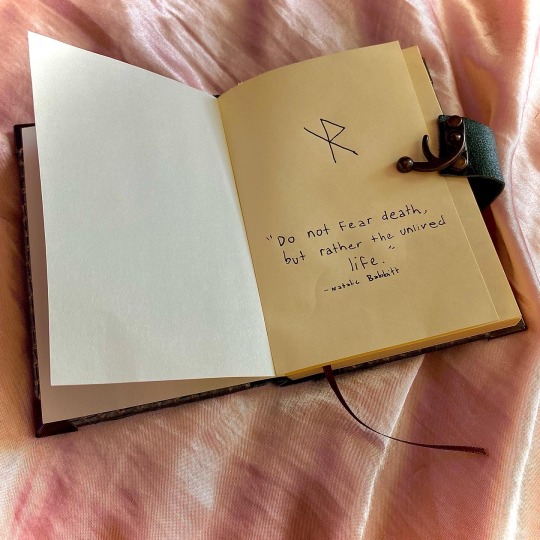 "Do not Fear death,
but rather the unlived
life."
-Natalie Babbitt